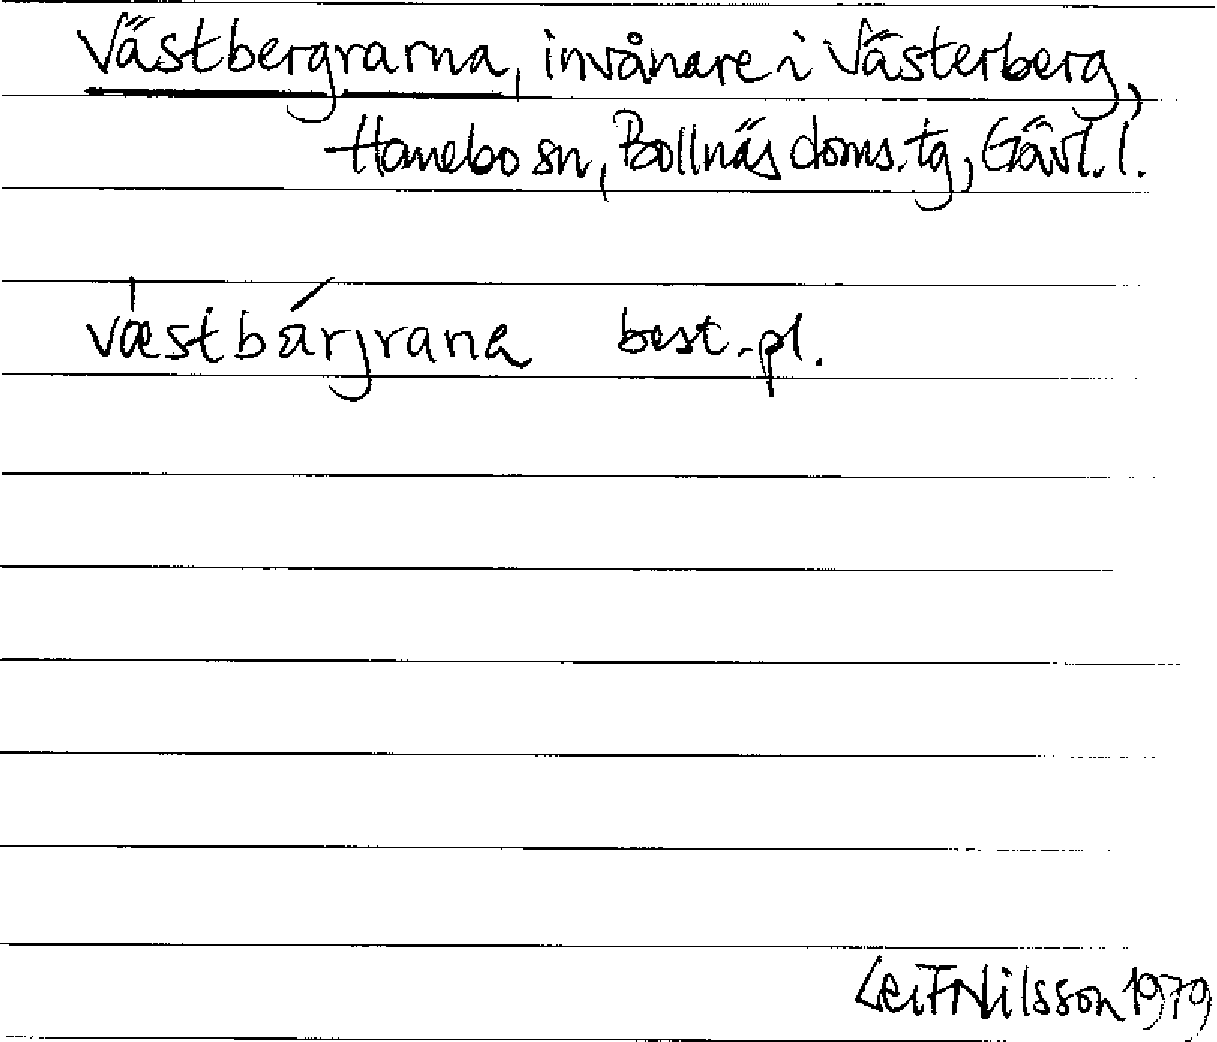 Västbergrarna, invånare i Västerberg,
Hanebo sn, Bollnäs doms. tg, Gävl. l.
væstbærjrana best. pl.
Leif Nilsson 1979